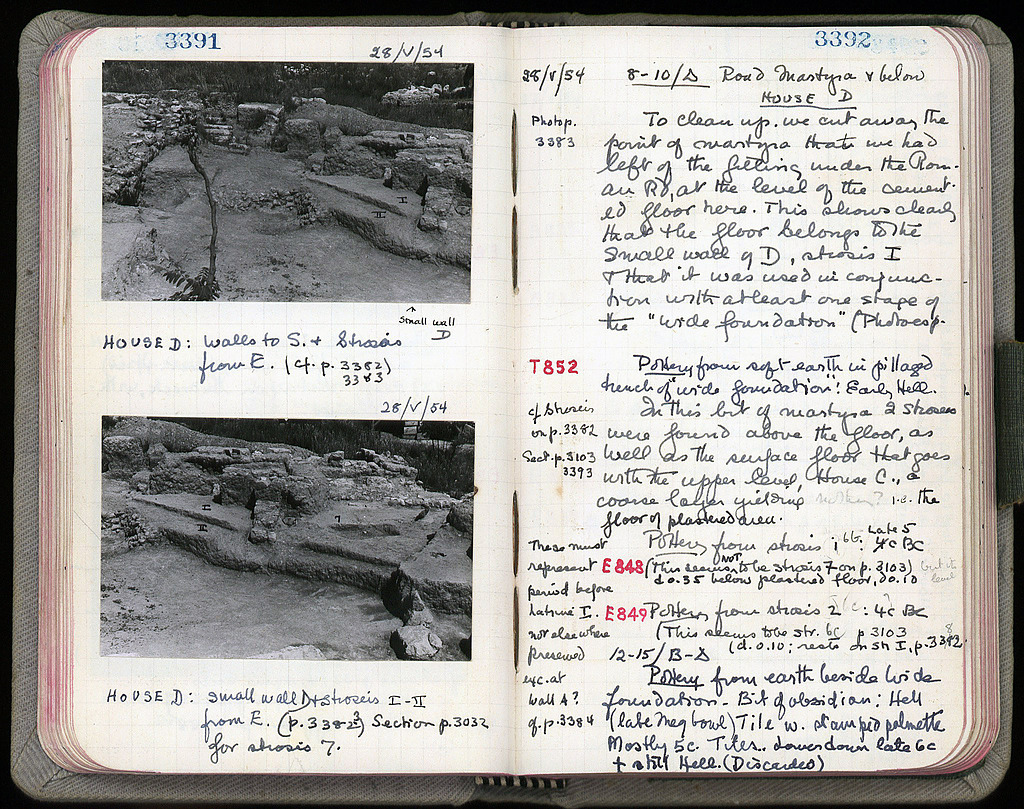 3391
28/V/54
I
II
↑
Small wall
D
HOUSE D: Walls to S. + Stroseis
from E. (cf. p. 3382)
3383
28/V/54
I
II
7
HOUSE D: Small wall D + Stroseis I-II
from E. (p. 3382) Section p. 3032
for strosis 7.
3392
28/V/54 8-10/Δ Road Martyra & below
HOUSE D
Photo p.
3383
To clean up, we cut away the
point of martyra that we had
left of the filling under the Rom-
an Rd, at the level of the cement-
ed floor here. This shows clearly
that the floor belongs to the
small wall of D, strosis I
& that it was used in conjunc-
tion with at least one stage of
the "wide foundation" (Photo esp.
T852 Pottery from soft earth in pillaged
trench of "wide foundation": Early Hell.
cf Stroseis
on p. 3382
Sect. p. 3103
3393
In this bit of martyra 2 stroseis
were found above the floor, as
well as the surface floor that goes
with the upper level, House C., a
coarse layer yielding i.e. the
floor of plastered area.
These must
represent
period before
Latrine I.
not elsewhere
preserved
exc. at
Wall A?
cf. p. 3384
Pottery from strosis 1: Late 5
4c BC
E848 (This seems NOT to be strosis 7 on p. 3103)
d 0.35 below plastered floor, d 0.10
E849 Pottery from strosis 2: 4c BC
(This seems to be str. 6c p 3103
(d. 0.10; rests on str I, p. 3382
12-15/B-Δ
Pottery from earth beside wide
foundation. Bit of obsidian: Hell
(late Meg bowl) Tile w. stamped palmette
Mostly 5c. Tiles. Lower down late 6c
+ still Hell. (Discarded)